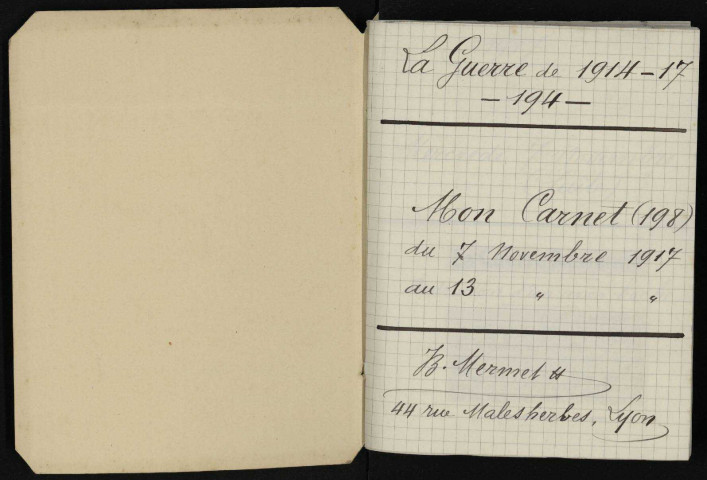 La Guerre de 1914-17
- 194 -
Mon Carnet (198)
du 7 Novembre 1917
au 13 " "
B. Mermet
44 rue Malesherbes, Lyon